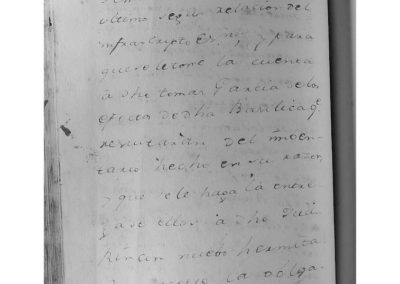 ultimo segun relacion del
infrascripto Es.no, y para
que se le tome la cuenta
à dho tomas Garcia de los
efectos de dha Basilica q.e
resultaran del imben-
tario hecho en su razon,
y que se le haga la entre-
ga de ellos à dho
Rincon nuebo hermita
la obliga-